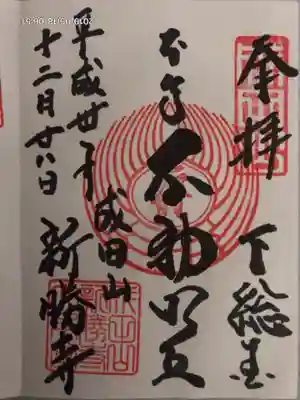 奉拝
下総国
本尊
不動明王
成田山
新勝寺
平成廿年
十二月廿八日